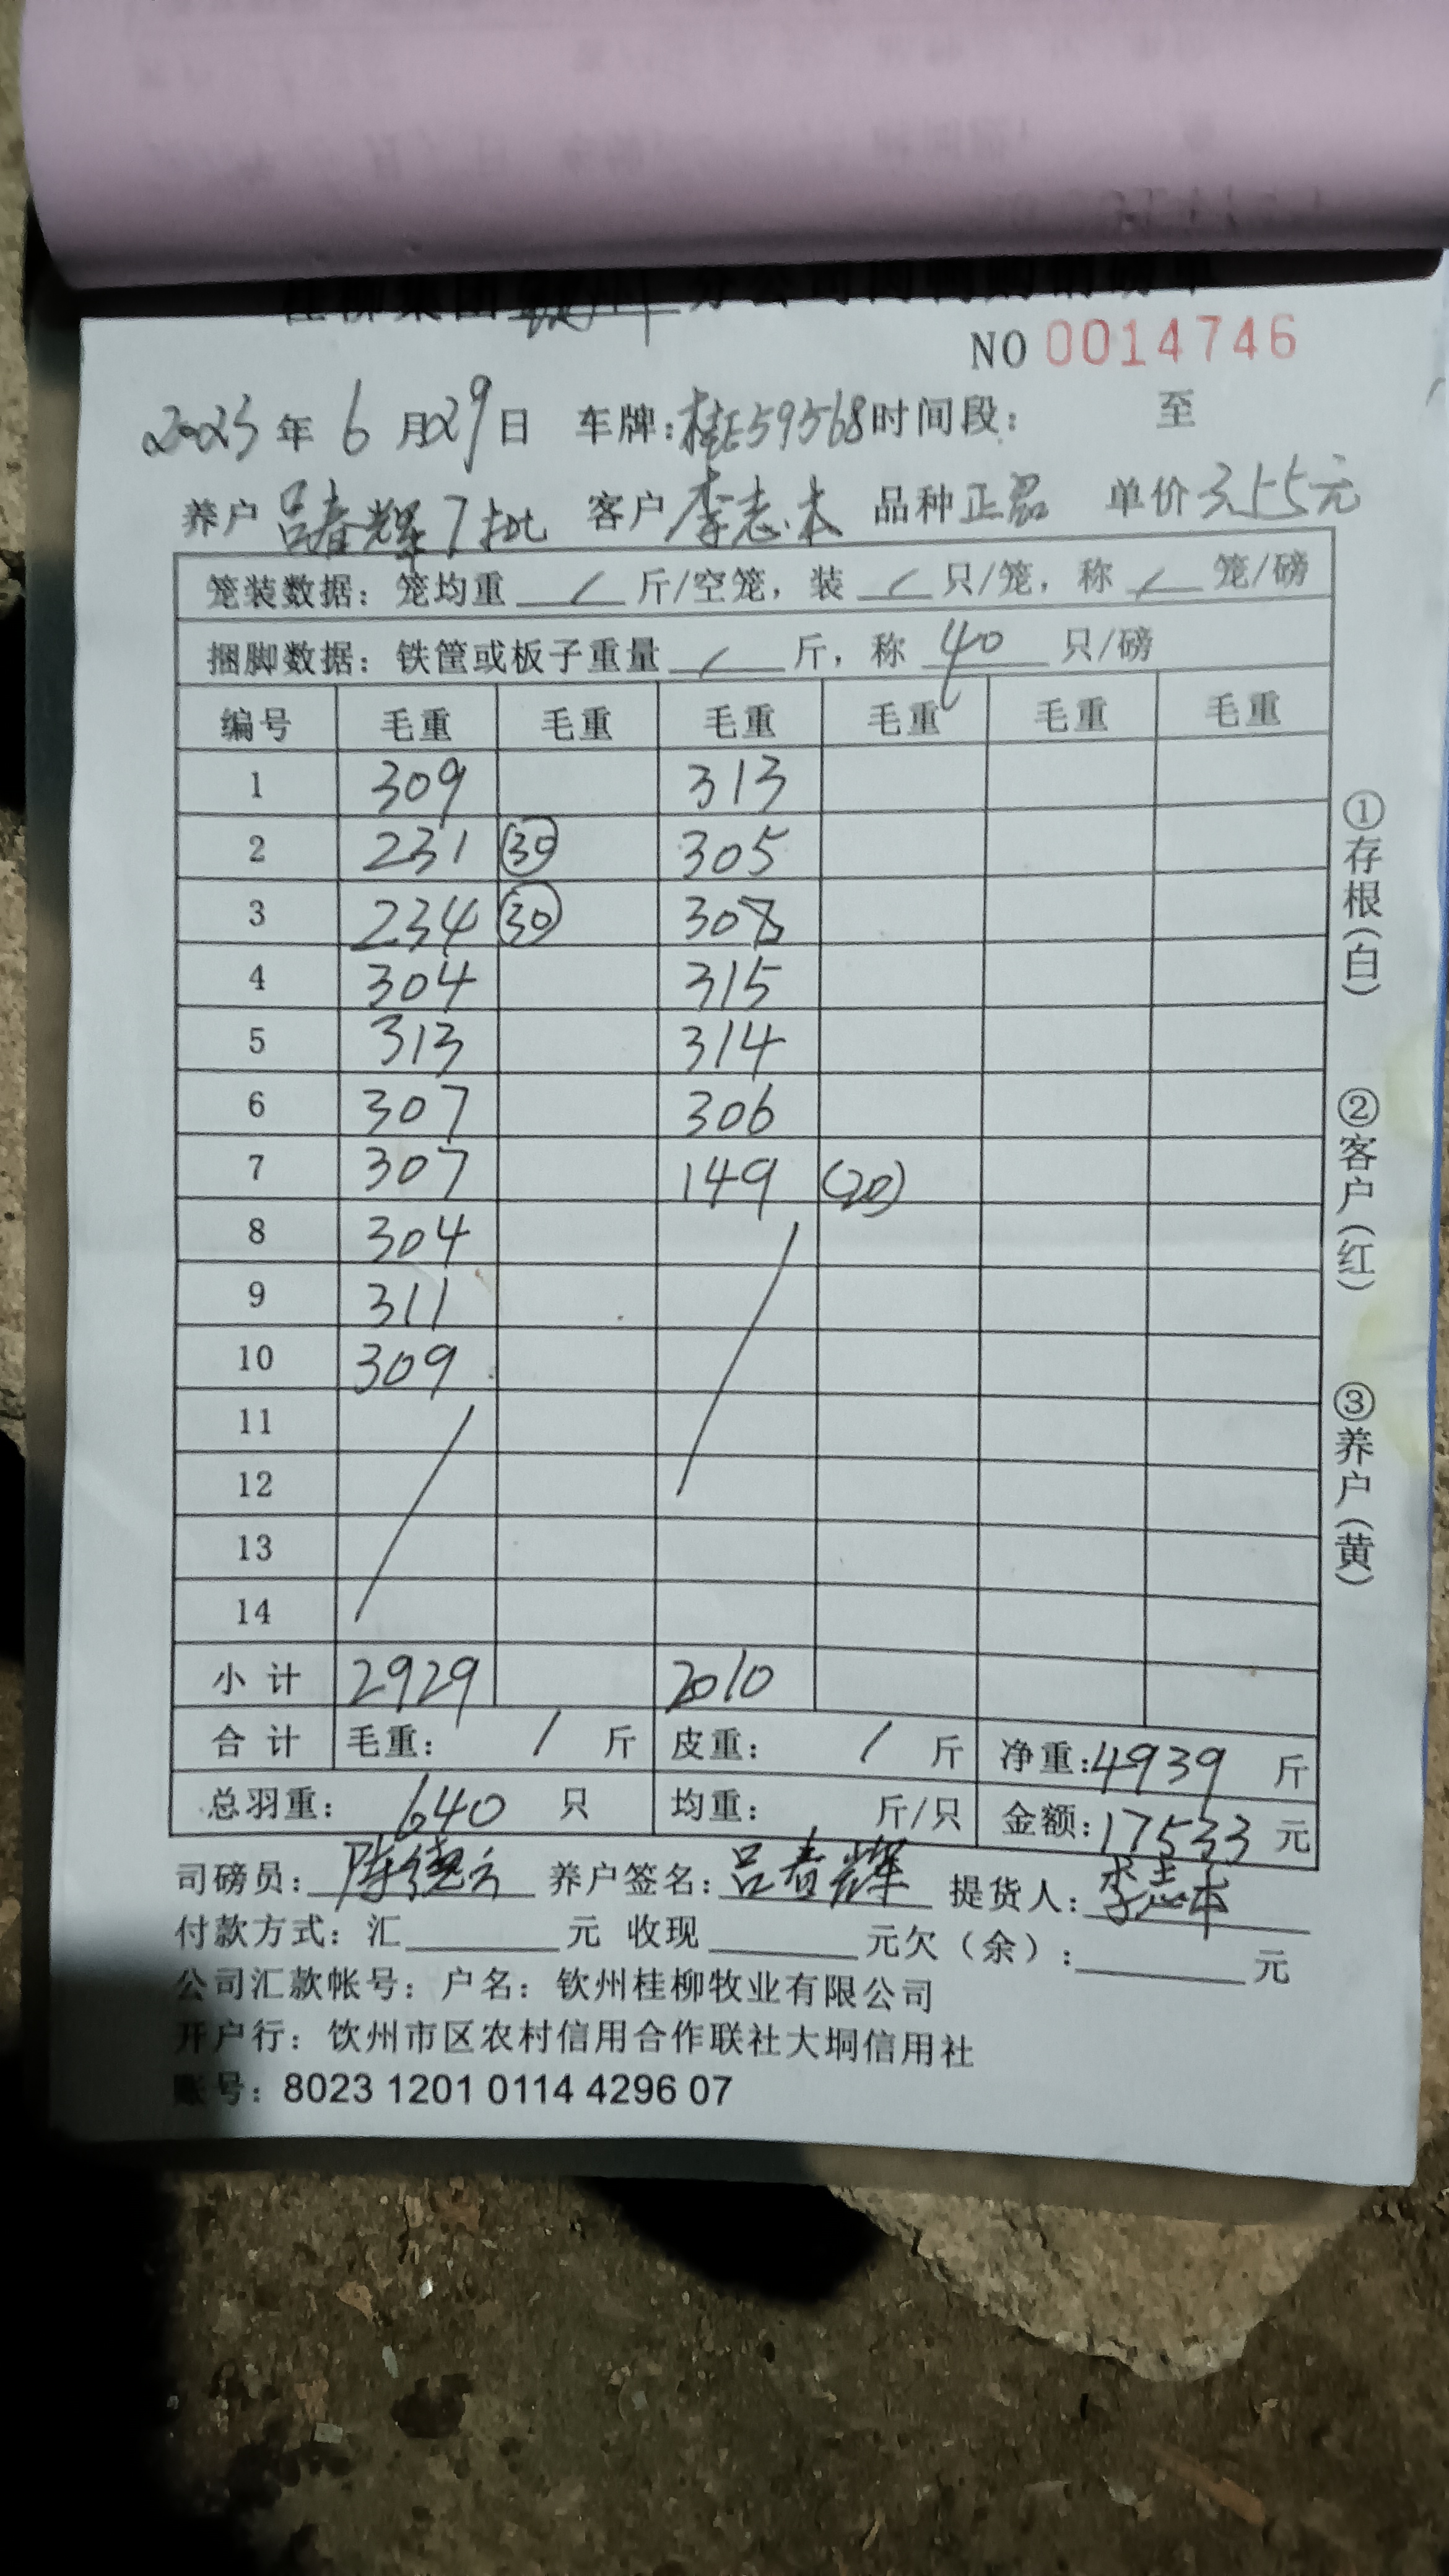 NO 0014746
2023年 6月29日 车牌:桂E59568时间段: 至
养户 吕春辉7批 客户 李志本 品种 正品 单价 3.55元
笼装数据: 笼均重 / 斤/空笼, 装 / 只/笼, 称 / 笼/磅
捆脚数据: 铁筐或板子重量 / 斤, 称 40 只/磅
编号 毛重 毛重 毛重 毛重 毛重 毛重
1 309 313
2 231 (30) 305
3 234 (30) 308
4 304 315
5 313 314
6 307 306
7 307 149 (20)
8 304
9 311
10 309
11
12
13
14
小计 2929 2010
合计 毛重: / 斤 皮重: / 斤 净重:4939 斤
总羽重: 640 只 均重: 斤/只 金额:17533 元
司磅员: 陈德云 养户签名: 吕春辉 提货人: 李志本
付款方式: 汇 元 收现 元欠(余): 元
公司汇款帐号: 户名: 钦州桂柳牧业有限公司
开户行: 饮州市区农村信用合作联社大垌信用社
账号: 8023 1201 0114 4296 07
①存根(白)
②客户(红)
③养户(黄)